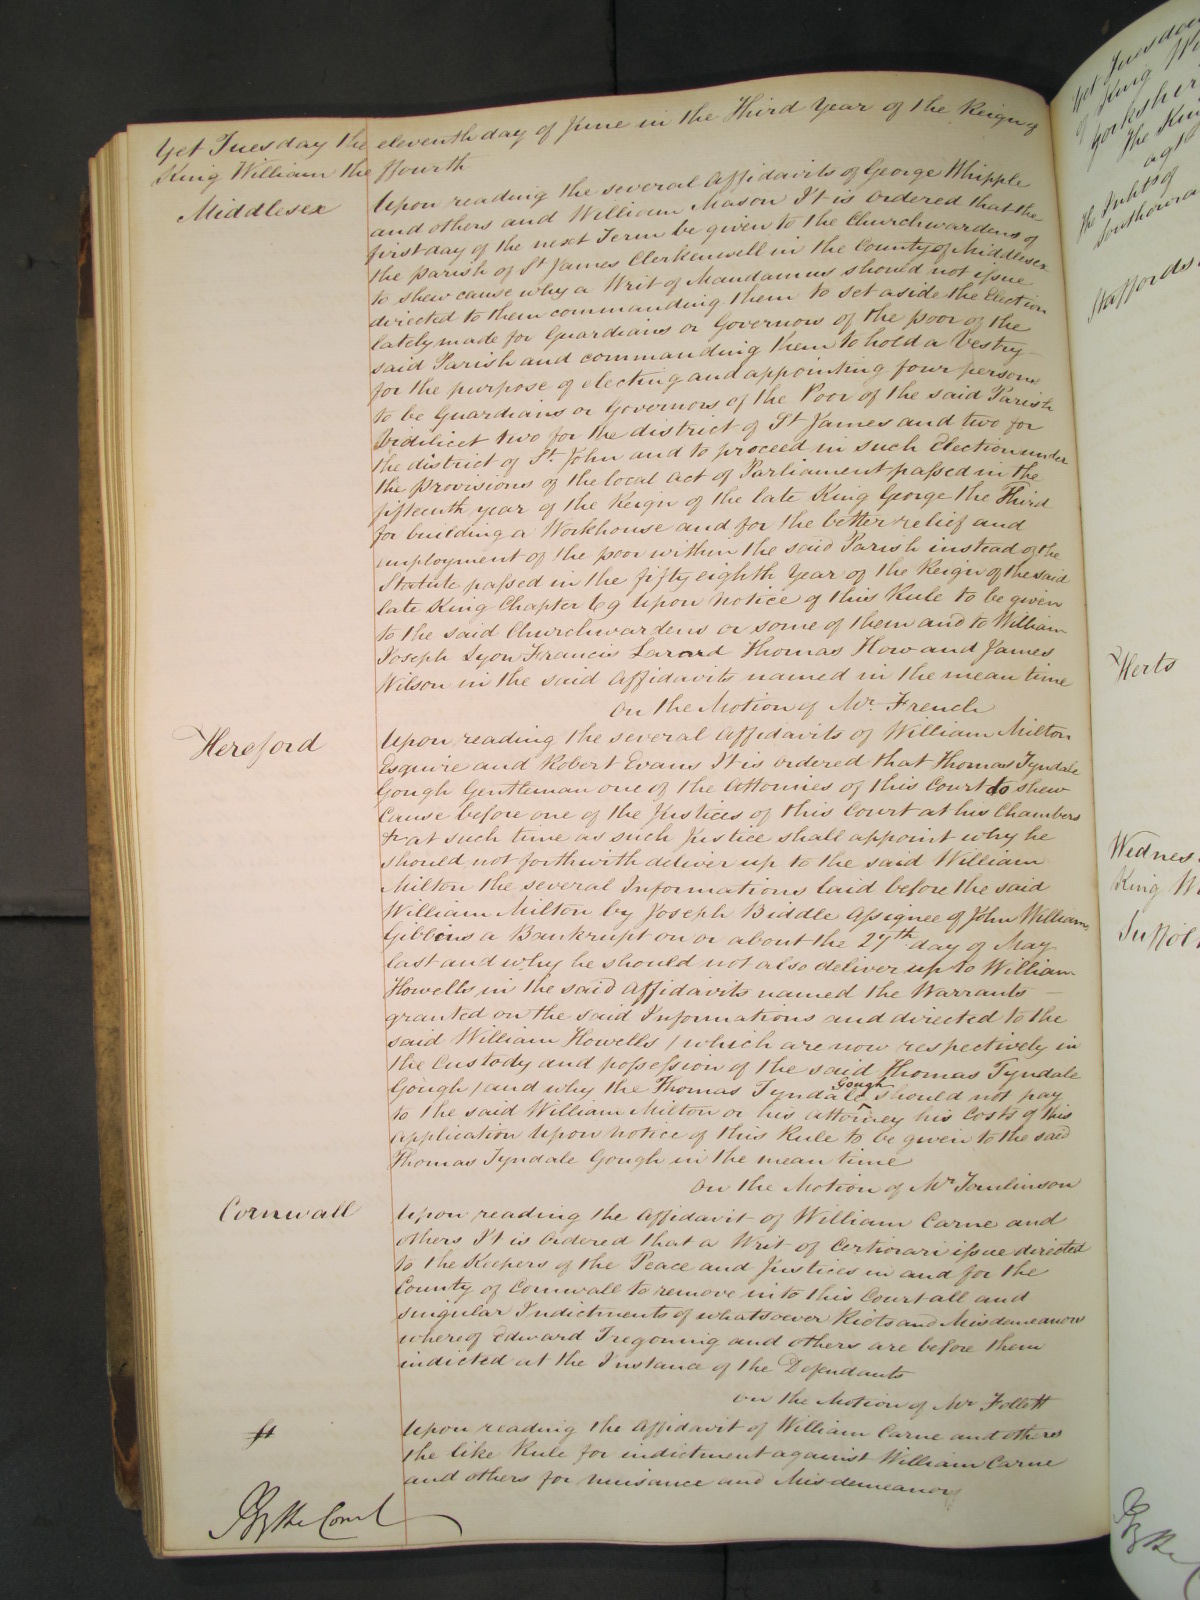 Yet Tuesday the eleventh day of June in the Third Year of the Reign of
King William the ffourth
Middlesex
Upon reading the several Affidavits of George Whipple
and others and William Mason It is Ordered that the
first day of the next Term be given to the Churchwardens of
the parish of St James Clerkenwell in the County of Middlesex
to shew cause why a Writ of Mandamus should not issue
directed to them commanding them to set aside the Election
lately made for Guardians or Governors of the poor of the
said Parish and commanding them to hold a Vestry
for the purpose of electing and appointing four persons
to be Guardians or Governors of the Poor of the said Parish
Videlicet two for the district of St James and two for
the district of St. John and to proceed in such Election under
the provisions of the local act of Parliament passed in the
fifteenth year of the Reign of the late King George the Third
for building a Workhouse and for the better relief and
employment of the poor within the said Parish instead of the
Statute passed in the fifty eighth Year of the Reign of the said
late King Chapter 69 Upon notice of this Rule to be given
to the said Churchwardens or some of them and to William
Joseph Lyon Francis Larard Thomas How and James
Wilson in the said Affidavits named in the mean time
On the Motion of Mr. French
Hereford
Upon reading the several Affidavits of William Milton
Esquire and Robert Evans It is ordered that Thomas Tyndale
Gough Gentleman one of the Attornies of this Court do shew
Cause before one of the Justices of this Court at his Chambers
at such time as such Justice shall appoint why he
should not forthwith deliver up to the said William
Milton the several Informations laid before the said
William Milton by Joseph Biddle Assignee of John William
Gibbins a Bankrupt on or about the 27th day of May
last and why he should not also deliver up to William
Howells in the said Affidavits named the Warrants
granted on the said Informations and directed to the
said William Howells / which are now respectively in
the Custody and possession of the said Thomas Tyndale
Gough / and why the Thomas Tyndale Gough should not pay
to the said William Milton or his attorney his Costs of this
application Upon notice of this Rule to be given to the said
Thomas Tyndale Gough in the mean time
On the Motion of Mr Tomlinson
Cornwall
Upon reading the Affidavit of William Carne and
others It is Ordered that a Writ of Certiorari issue directed
to the Keepers of the Peace and Justices in and for the
County of Cornwall to remove into this Court all and
singular Indictments of whatsoever Riots and Misdemeanors
whereof Edward Tregoning and others are before them
indicted at the Instance of the Defendants
On the Motion of Mr Follett
Upon reading the Affidavit of William Carne and others
the like Rule for indictment against William Carne
and others for nuisance and Misdemeanors
By the Court
Yet Tuesday
of King Wi
Yorkshire
The Kin
agst
the Inhts of
Southowra
Staffords
Herts
Wednes
King W
Suffol
By the